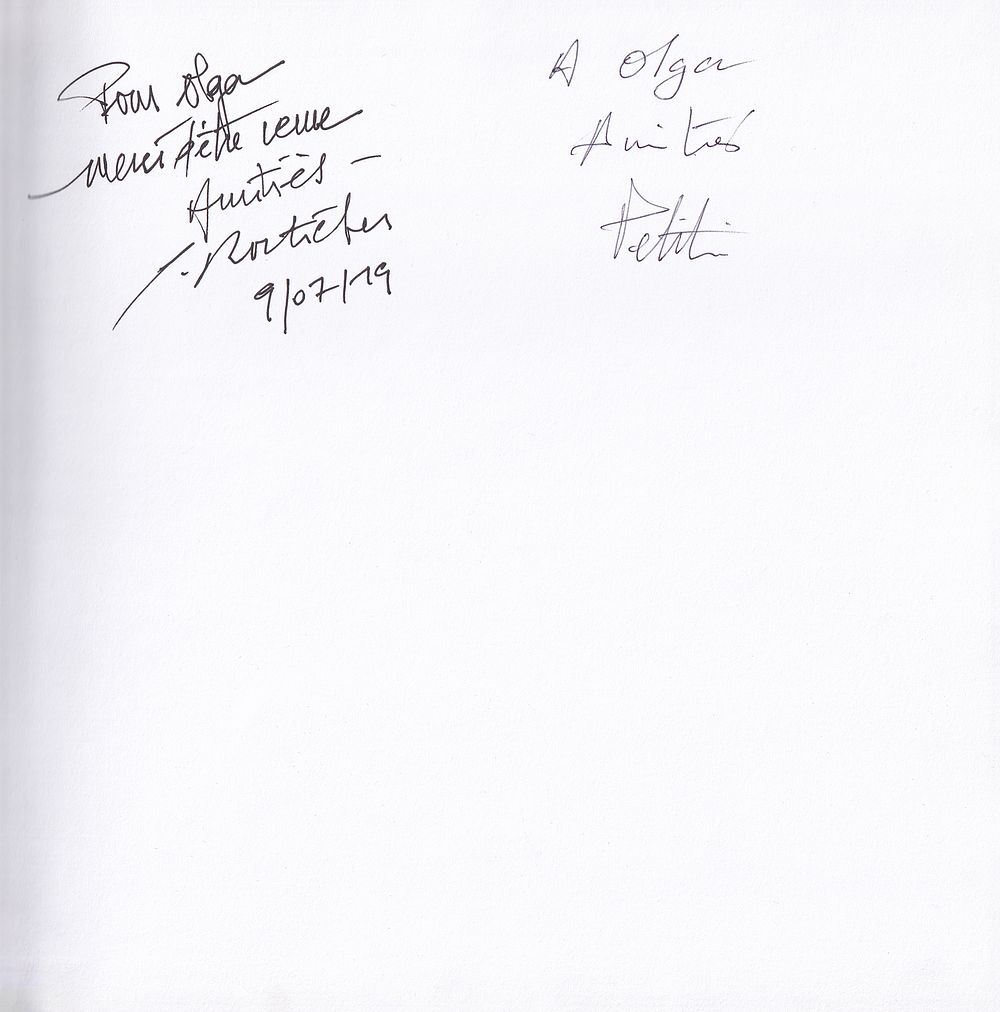 Pour Olga
merci d'être venue
Amitiés -
9/07/19
A Olga
Amitiés
Petit